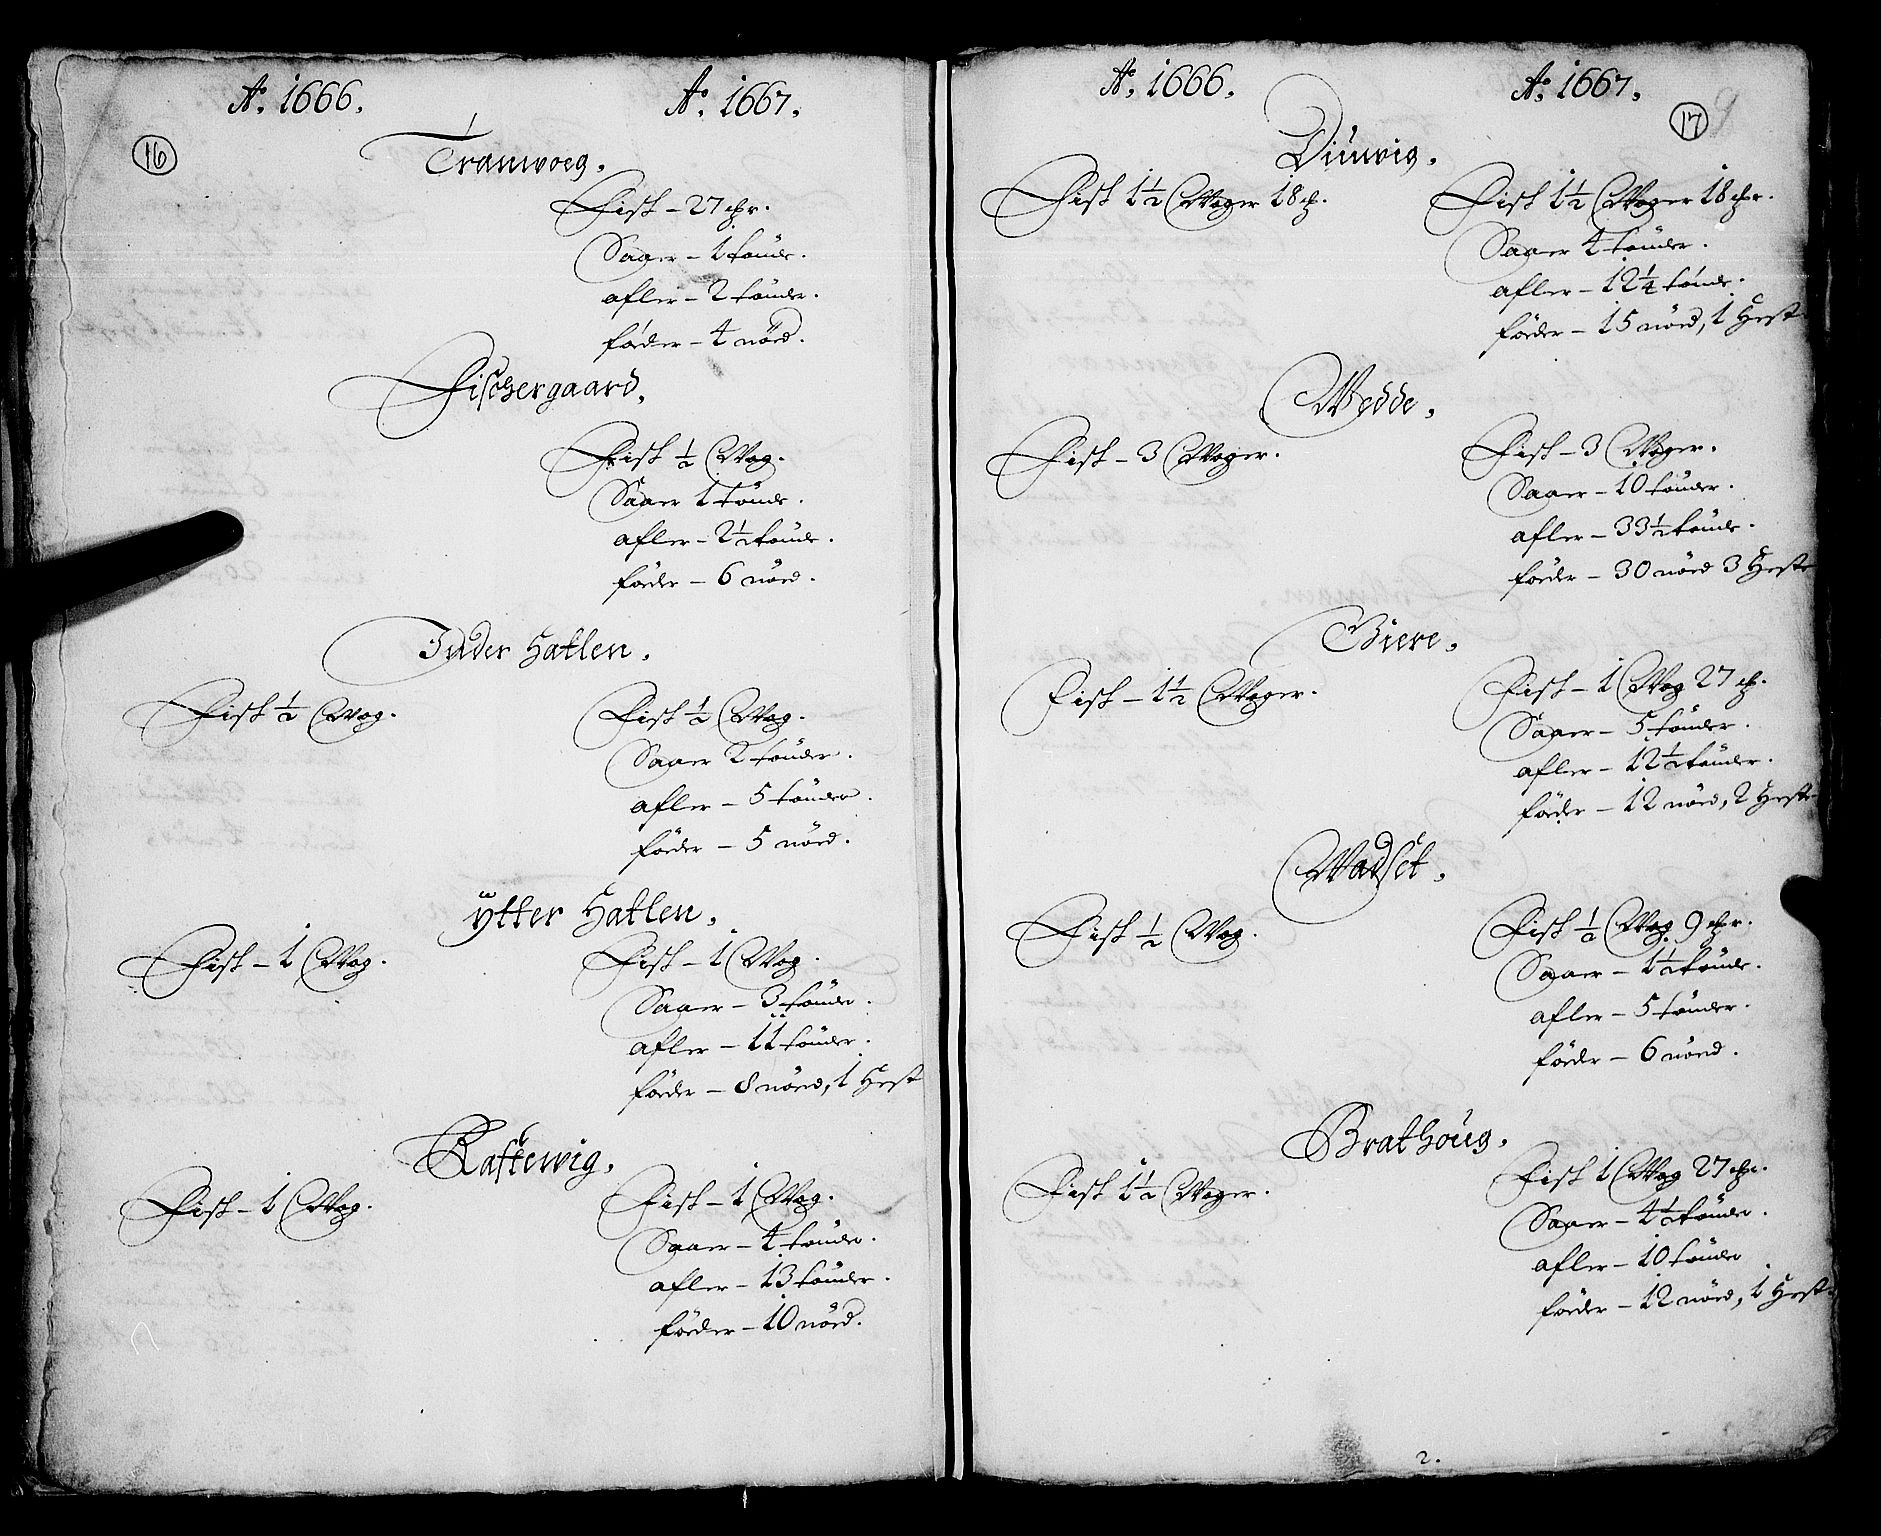 Aº. 1666.
Aº. 1667.
16
Tranwoeg.
Fisk – 27 ℔r.
Saaer – 1 tönde.
afler – 2 tönder.
föder – 4 nöed.
Fischergaard.
Fisk ½ Wog.
Saaer 1 tönde.
afler – 2½ tönde.
föder – 6 nöed.
Inder Hatlen.
Fisk ½ Wog.
Fisk ½ Wog.
Saaer 2 tönder.
afler – 5 tönder.
föder – 5 nöed.
ÿtter Hatlen.
Fisk – 1 Wog.
Fisk – 1 Wog.
Saaer – 3 tönder.
afler – 11 tönder.
föder – 8 nöed, 1 Hest
Raftewig.
Fisk – 1 Wog.
Fisk – 1 Wog.
Saaer – 4 tönder.
afler – 13 tönder.
föder – 10 nöed.
Aº. 1666.
Aº. 1667.
17
9
Diuwig.
Fisk 1½ Woger 18 ℔.
Fisk 1½ Woger 18 ℔r.
Saaer 4 tönder.
afler – 12¼ tönde.
föder – 15 nöed, 1 Hest
Wedde.
Fisk – 3 Woger.
Fisk – 3 Woger.
Saaer – 10 tönder.
afler – 33½ tönde.
föder – 30 nöed 3 Heste
Giere.
Fisk – 1½ Woger.
Fisk – 1 Wog 27 ℔.
Saaer – 5 tönder.
afler – 12½ tönder.
föder – 12 nöed, 2 Heste
Wadset.
Fisk ½ Wog.
Fisk ½ Wog. 9 ℔r.
Saaer – 1½ tönde.
afler – 5 tönder.
föder – 6 nöed.
Brathoug.
Fisk 1½ Woger.
Fisk 1 Wog 27 ℔r.
Saaer – 4½ tönder.
afler – 10 tönder
föder – 12 nöed, 1 Hest.
2.